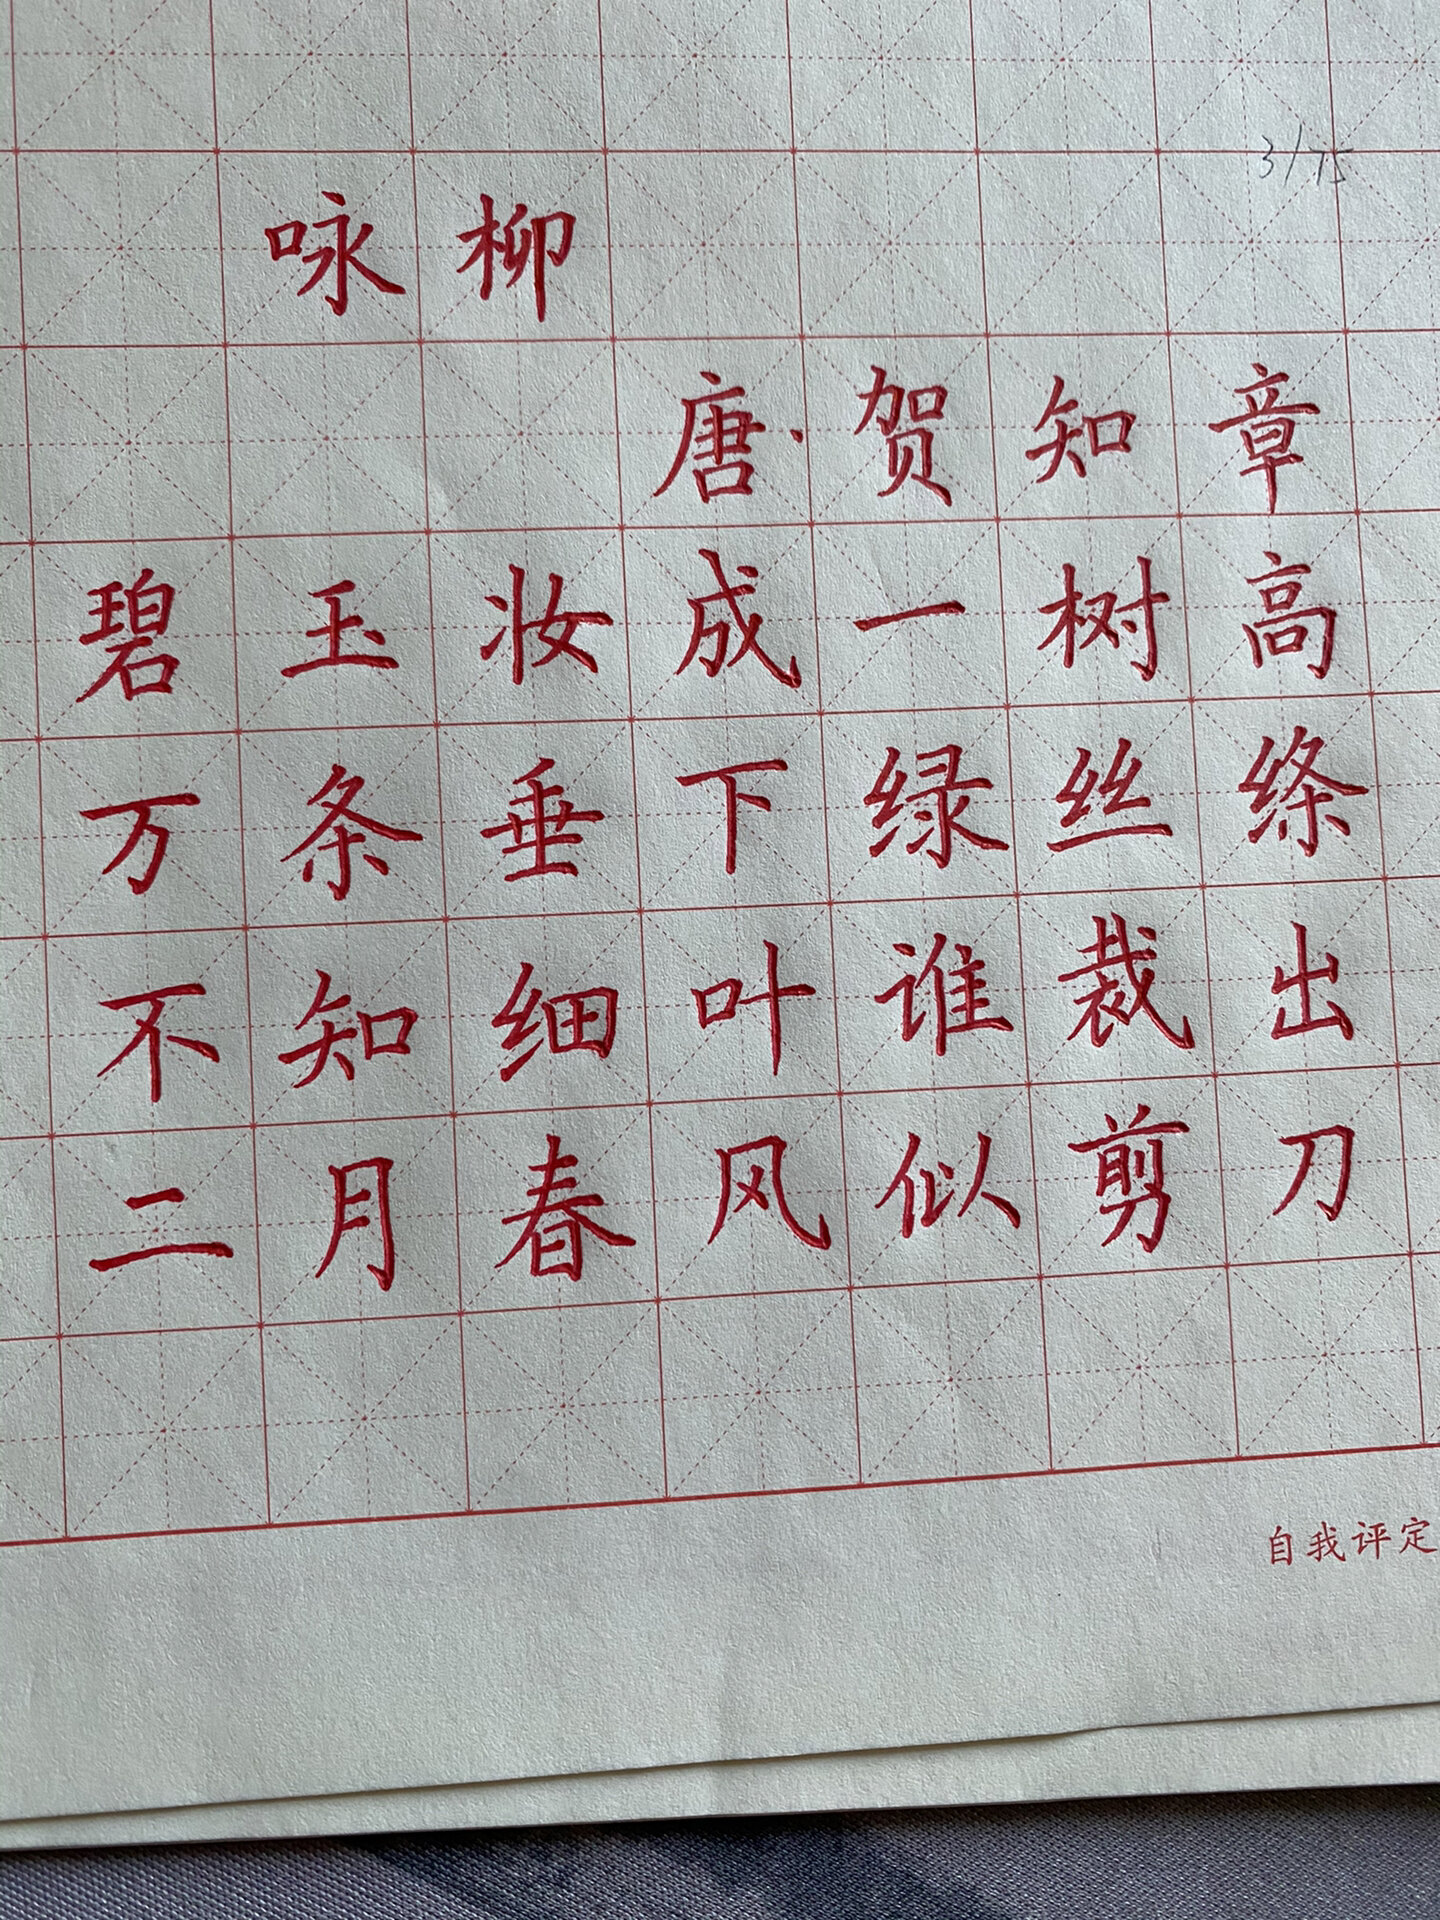 3/75
咏柳
唐·贺知章
碧玉妆成一树高
万条垂下绿丝绦
不知细叶谁裁出
二月春风似剪刀
自我评定